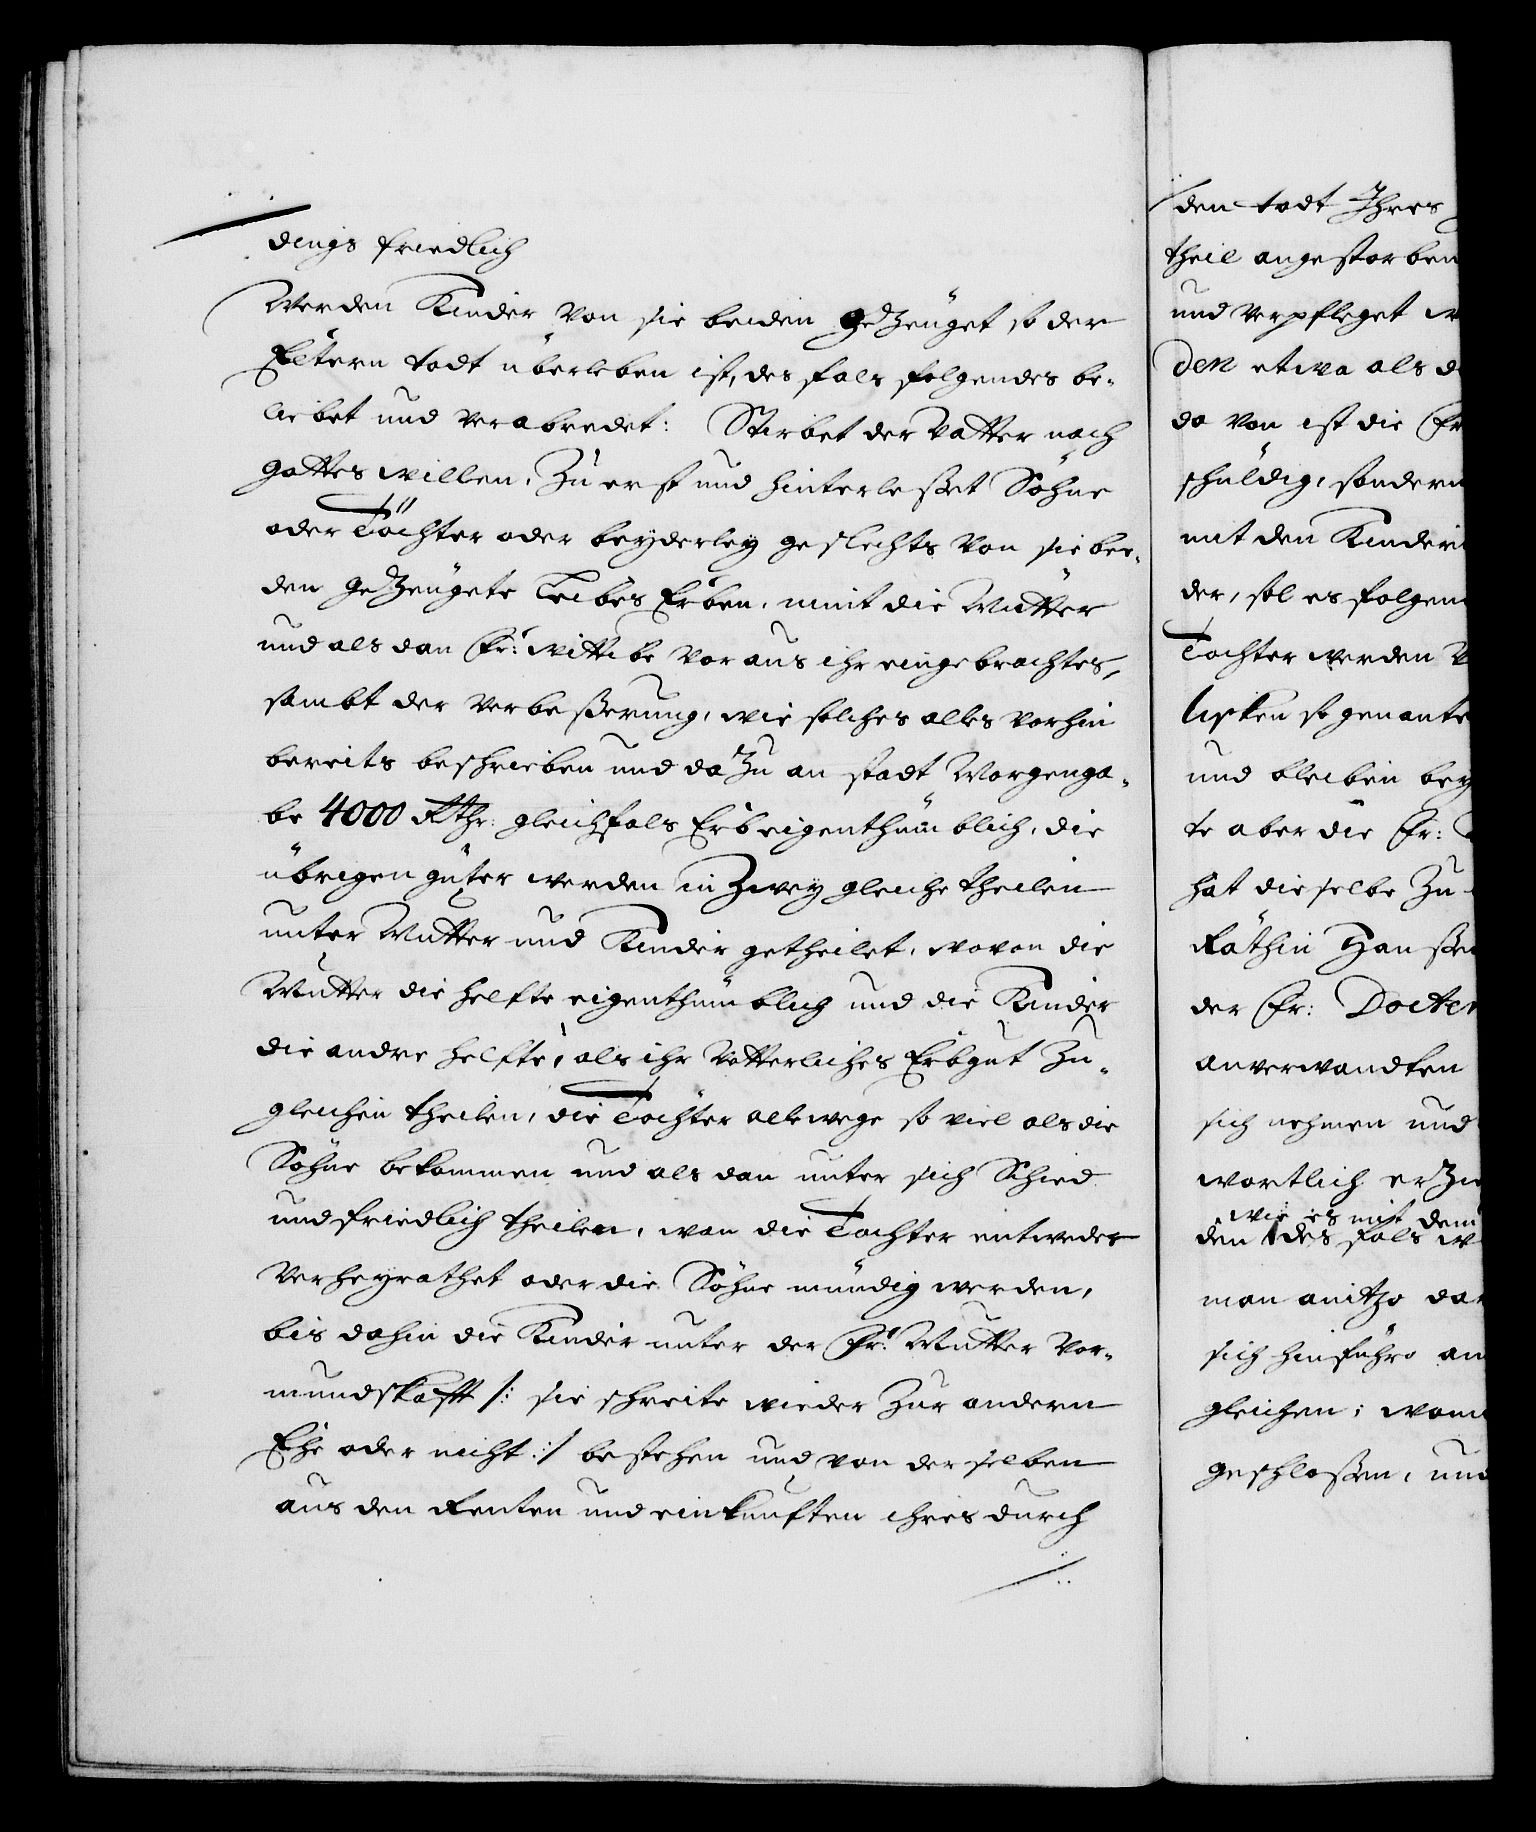 dings friedlich
Werden Kinder von sie beiden gezeuget so der
Eltern todt überleben ist, des fals folgendes be-
liebet und verabredet: Stirbet der Vatter nach
gottes willen, zu erst und hinterleßet Söhne
oder Töchter oder beyderley geslechts von sie bee-
den gezeugete Leibes Erben, nimt die Mutter
und als dan Fr: wittibe voraus ihr eingebrachtes,
sambt der verbeßerung, wie solches alles vorhin
bereits beschrieben und dazu an stadt Morgenga-
be 4000 Rthr: gleichfals Erbeigenthümblich, die
übrigen güter werden in zwey gleiche theilen
unter Mutter und Kinder getheilet, wovon die
Mutter die helfte eigenthümblich und die Kinder
die andre helfte, als ihr Vätterliches Erbgut zu
gleichen theilen, die Töchter allewege so viel als die
Söhne bekommen und als dan unter sich Schied
und friedlich theilen, wan die Töchter entweder
verheyrathet oder die Söhne mündig werden,
bis dahin die Kinder unter der Fr: Mutter Vor-
mundskafft /: sie schreite wieder zur andern
Ehe oder nicht :/ bestehen und von derselben
aus den Renten und einkunften ihres durch
den todt Ihres
theil angestorben
und verpfleget
den etwa als
da von ist die Fr
schuldig, sondern
mit den Kindern
der, sol es folgen
Tochter werden
lisken so genante
und bleiben bey
te aber die Fr:
hat dieselbe zu
Räthin Hanßen
der Fr: Docter
anverwandten
sich nehmen und
wortlich erzie
wie es mit dem
den des fals
man anitzo dar
sich hinführo an
gleichen; wom
geschloßen, und